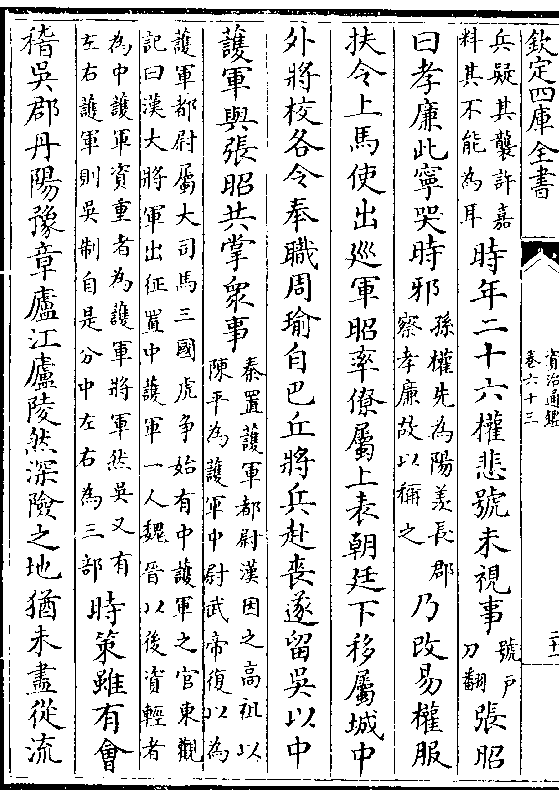 欽定四庫全書
資治通鑑
卷六十三
兵疑其襲許嘉
料其不能為耳
時年二十六權悲號未視事
號戶
刀翻
張昭
曰孝廉此寧哭時邪
孫權先為陽羨長郡
察孝廉故以稱之
乃改易權服
扶令上馬使出廵軍昭率僚屬上表朝廷下移屬城中
外將校各令奉職周瑜自巴丘將兵赴喪遂留吳以中
護軍與張昭共掌衆事
秦置護軍都尉漢因之高祖以
陳平為護軍中尉武帝復以為
護軍都尉屬大司馬三國虎争始有中護軍之官東觀
記曰漢大將軍出征置中護軍一人魏晉以後資輕者
為中護軍資重者為護軍將軍然吳又有
左右護軍則吳制自是分中左右為三部
時策雖有會
稽吳郡丹陽豫章廬江廬陵然深險之地猶未盡從流